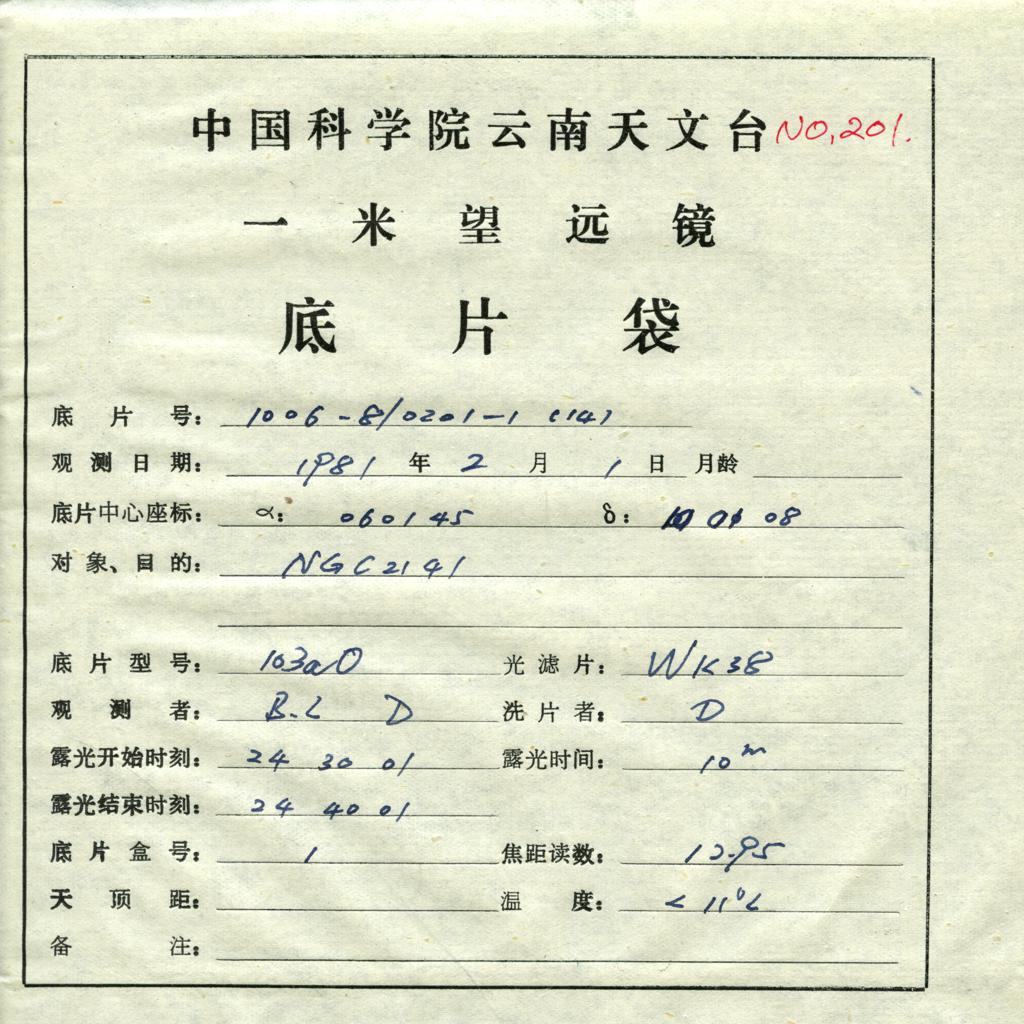 中国科学院云南天文台 NO.201.
一米望远镜
底片袋
底片号： 1006-8/0201-1 (14)
观测日期： 1981 年 2 月 1 日 月龄
底片中心座标： α： 060145 δ： 10 01 08
对象、目的： NGC2141
底片型号： 103aO 光滤片： WK38
观测者： B.L D 洗片者： D
露光开始时刻： 24 30 01 露光时间： 10m
露光结束时刻： 24 40 01
底片盒号： 1 焦距读数： 12.95
天顶距： 温度： < 11°C
备注：